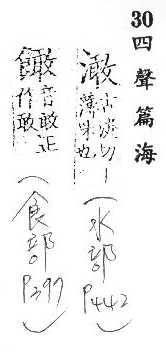 30 四聲篇海
澉 古淡切——薄味也
(水部 P442)
𩜱 音敢正作敢
(食部 P399)